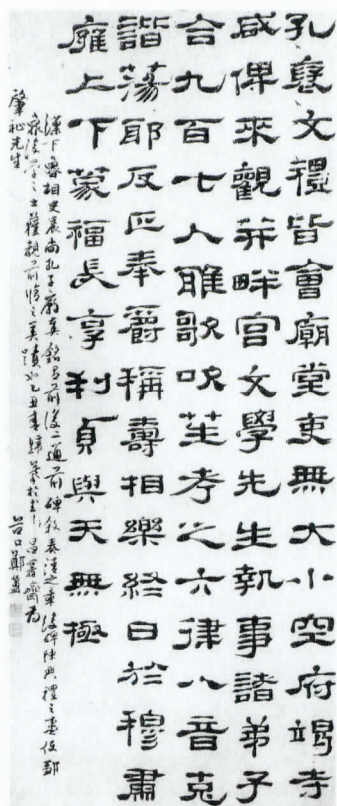 孔褒文禮皆會廟堂吏無大小空府竭寺
咸俾來觀并畔宮文學先生執事諸弟子
合九百七人雅歌吹笙考之六律八音克
諧蕩耶反正奉爵稱壽相樂終日於穆肅
廱上下蒙福長享利貞與天無極
漢下魯相史晨尚孔子廟奏銘有前後二通前碑敘奏請之章後碑陳典禮之盛使
後學之士獲觀前脩之美蹟也乙丑春歸摹於 書齋為
肇祉先生 谷口鄭簠